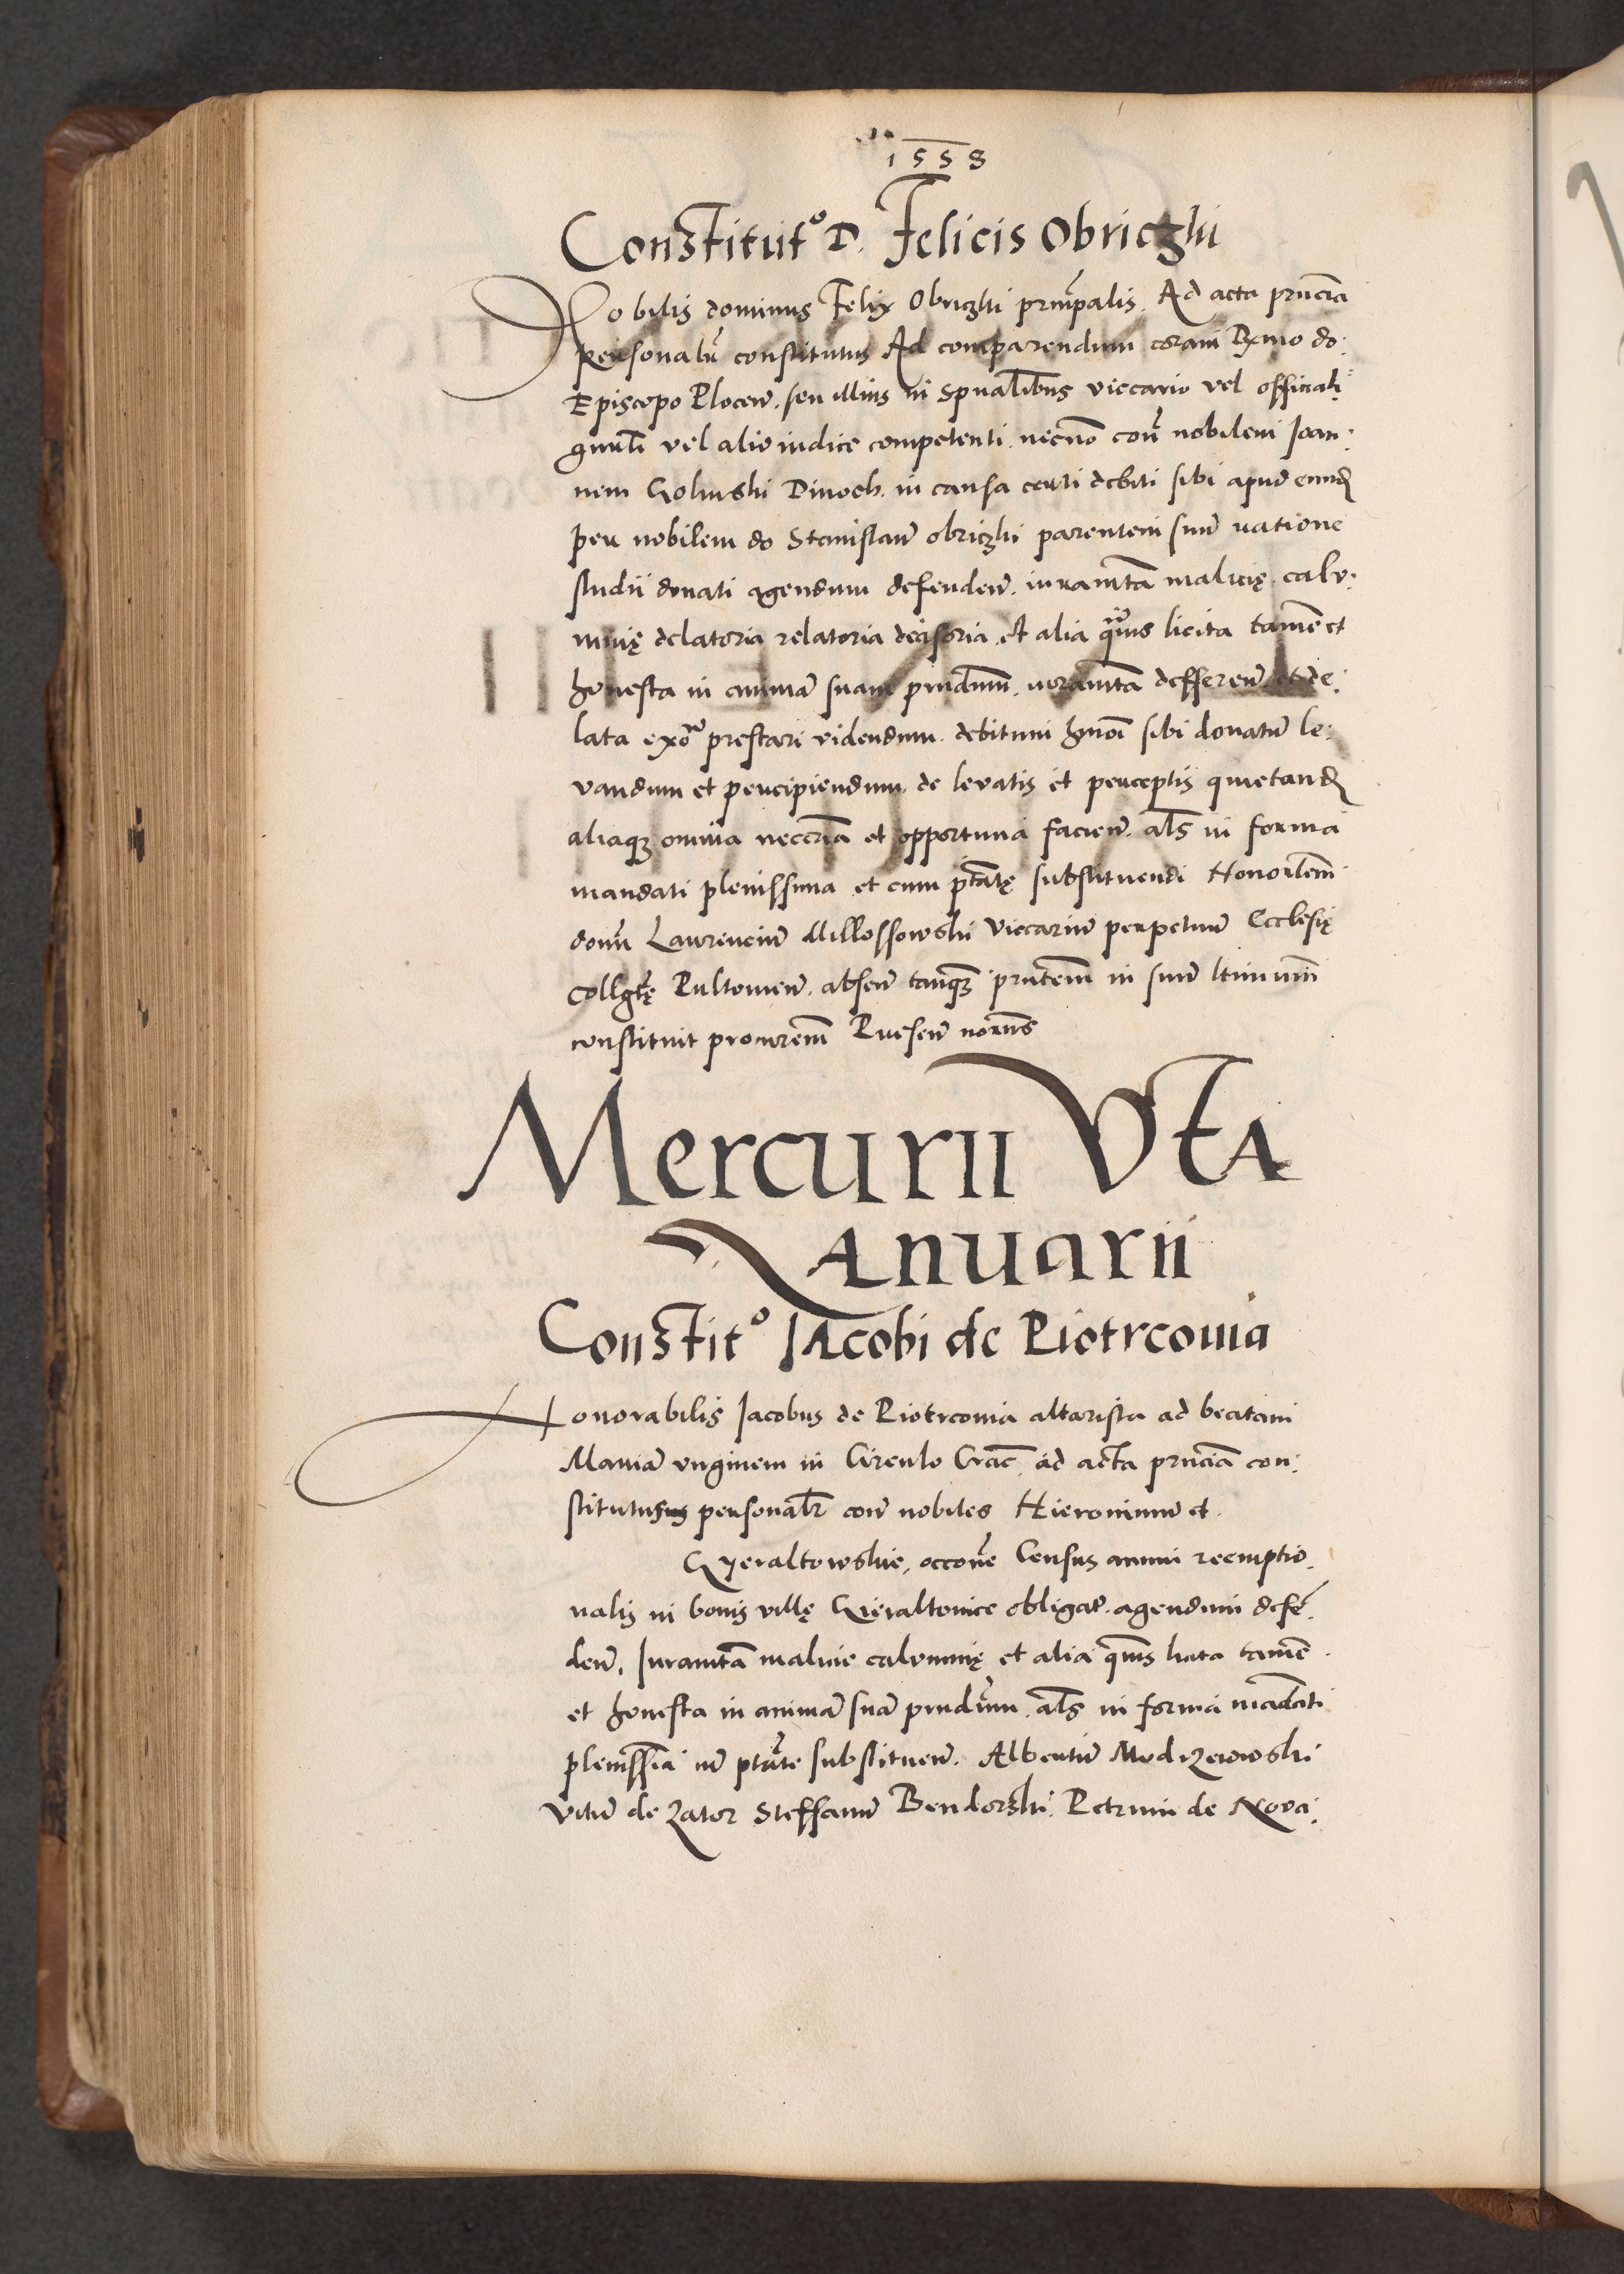 1558
Constitut° D. Felicis Obriczki
Nobilis dominus Felix Obriczki principalis. Ad acta prncia
personalr constitutus Ad comparendum coram Rxmo do:
Episcopo Plocen. seu illius in spualibus viccario vel officiali
gnrali vel alio iudice competenti necno con nobilem Joan:
nem Golinski Dioech. in causa certi debiti sibi apud eund
per nobilem do Stanislau obriczki parentem suu ratione
studii donati agendum defenden. iuramta malicię calv:
mnię delatoria relatoria decisoria et alia quis licita tame et
honesta in anima suam prndum. iuramta defferen et de:
lata ex° prestari videndum. debitum hmoi sibi donatu le:
vandum et percipiendum de levatis et perceptis quietand
aliaq omnia necria et opportuna facien. als in forma
mandati plenissima et cum ptate substituendi Honorlem
donu Laurenciu Millossowski viccariu perpetuu Ecclesię
Collgtę Pultovien. absen tanq prntem in suu ltimum
constituit procurem Presen notriis
Mercurii Vta
Ianuarii
Constit° Iacobi de Piotrcovia
Honorabilis Jacobus de Piotrcovia altarista ad beatam
Maria virginem in Circulo Crac. ad acta prncia con:
stitutus personalr con nobiles Hieronimu et
Gyeraltowskie, occone Census annui reemptio:
nalis in bonis villę Gieraltovice obligat. agendum defe:
den. Juramta malicie calvmnię et alia quis licita tame
et honesta in anima sua prndum. als in forma madati
plenissia cu ptate substituen. Albertu Modrzewski
Vitu de Zator Steffanu Bendorski Petrum de Nova: